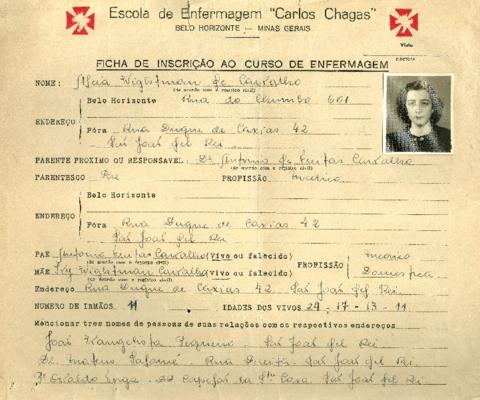 Escola de Enfermagem "Carlos Chagas"
BELO HORIZONTE — MINAS GERAIS
Visto
DIRETORA
FICHA DE INSCRIÇÃO AO CURSO DE ENFERMAGEM
NOME: Wightman de Carvalho
(de acordo com o registro civil)
Belo Horizonte Rua do Chumbo 601
ENDEREÇO
Fóra Rua Duque de Caxias 42
São João del Rei
PARENTE PROXIMO OU RESPONSAVEL: Dr. Antonio de Freitas Carvalho
(de acordo com o registro civil)
PARENTESCO Pae PROFISSÃO, medico
Belo Horizonte
ENDEREÇO
Fóra Rua Duque de Caxias 42
São João del Rei
PAE Antonio Freitas Carvalho (vivo ou falecido) medico
(de acordo com o registro civil)
PROFISSÃO
MÃE Wightman Carvalho (vivo ou falecido) Domestica
(de acordo com o registro civil)
Endereço Rua Duque de Caxias 42. São João del Rei
NUMERO DE IRMÃOS, 11 IDADES DOS VIVOS 24-17-13-11
Mencionar tres nomes de pessoas de suas relações com os respectivos endereços
João Evangelista Pequeno. São João del Rei
Dr. Mateus Salomé. Rua São João del Rei.
Pe Osvaldo da Sta Casa. São João del Rei